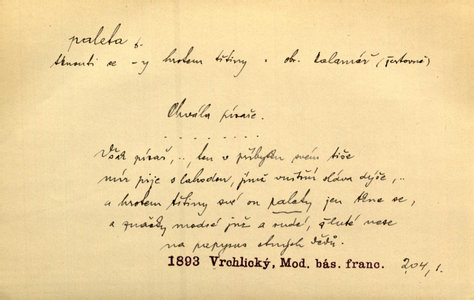 paleta f.
tknouti se -y hrotem třtiny · obr. kalamář (žertovně)
Chvála písaře.
. . . . . . .
Však písař, .., ten v příbytku svém tiše
mír pije slahodou, jímž vnitřní sláva dýše, ..
a hrotem třtiny své on palety jen tkne se,
a značky modré již a rudé, žluté nese
na papyrus ctných dědů.
1893 Vrchlický, Mod. bás. franc. 204, 1.